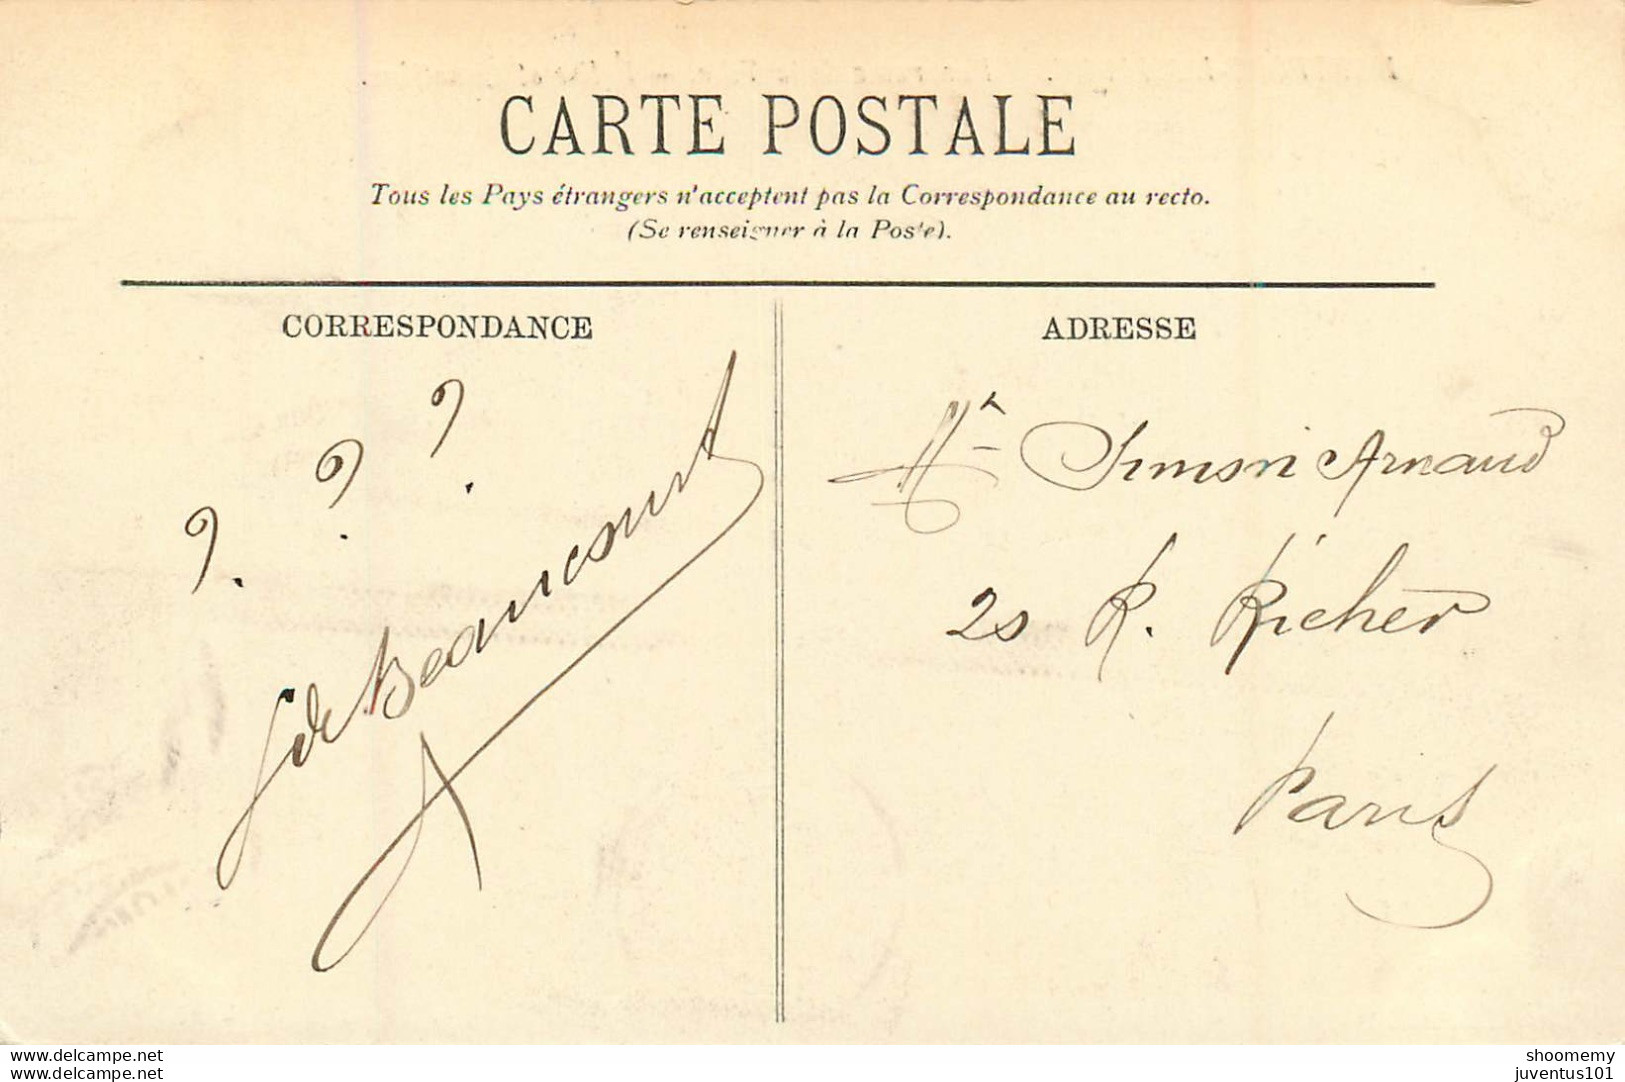 CARTE POSTALE
Tous les Pays étrangers n'acceptent pas la Correspondance au recto.
(Se renseigner à la Poste).
CORRESPONDANCE
ADRESSE
? ? ?
G de Beaucourt
Mr Simon Arnaud
20 R. Richer
Paris
www.delcampe.net
www.delcampe.net
shoomemy
juventus101